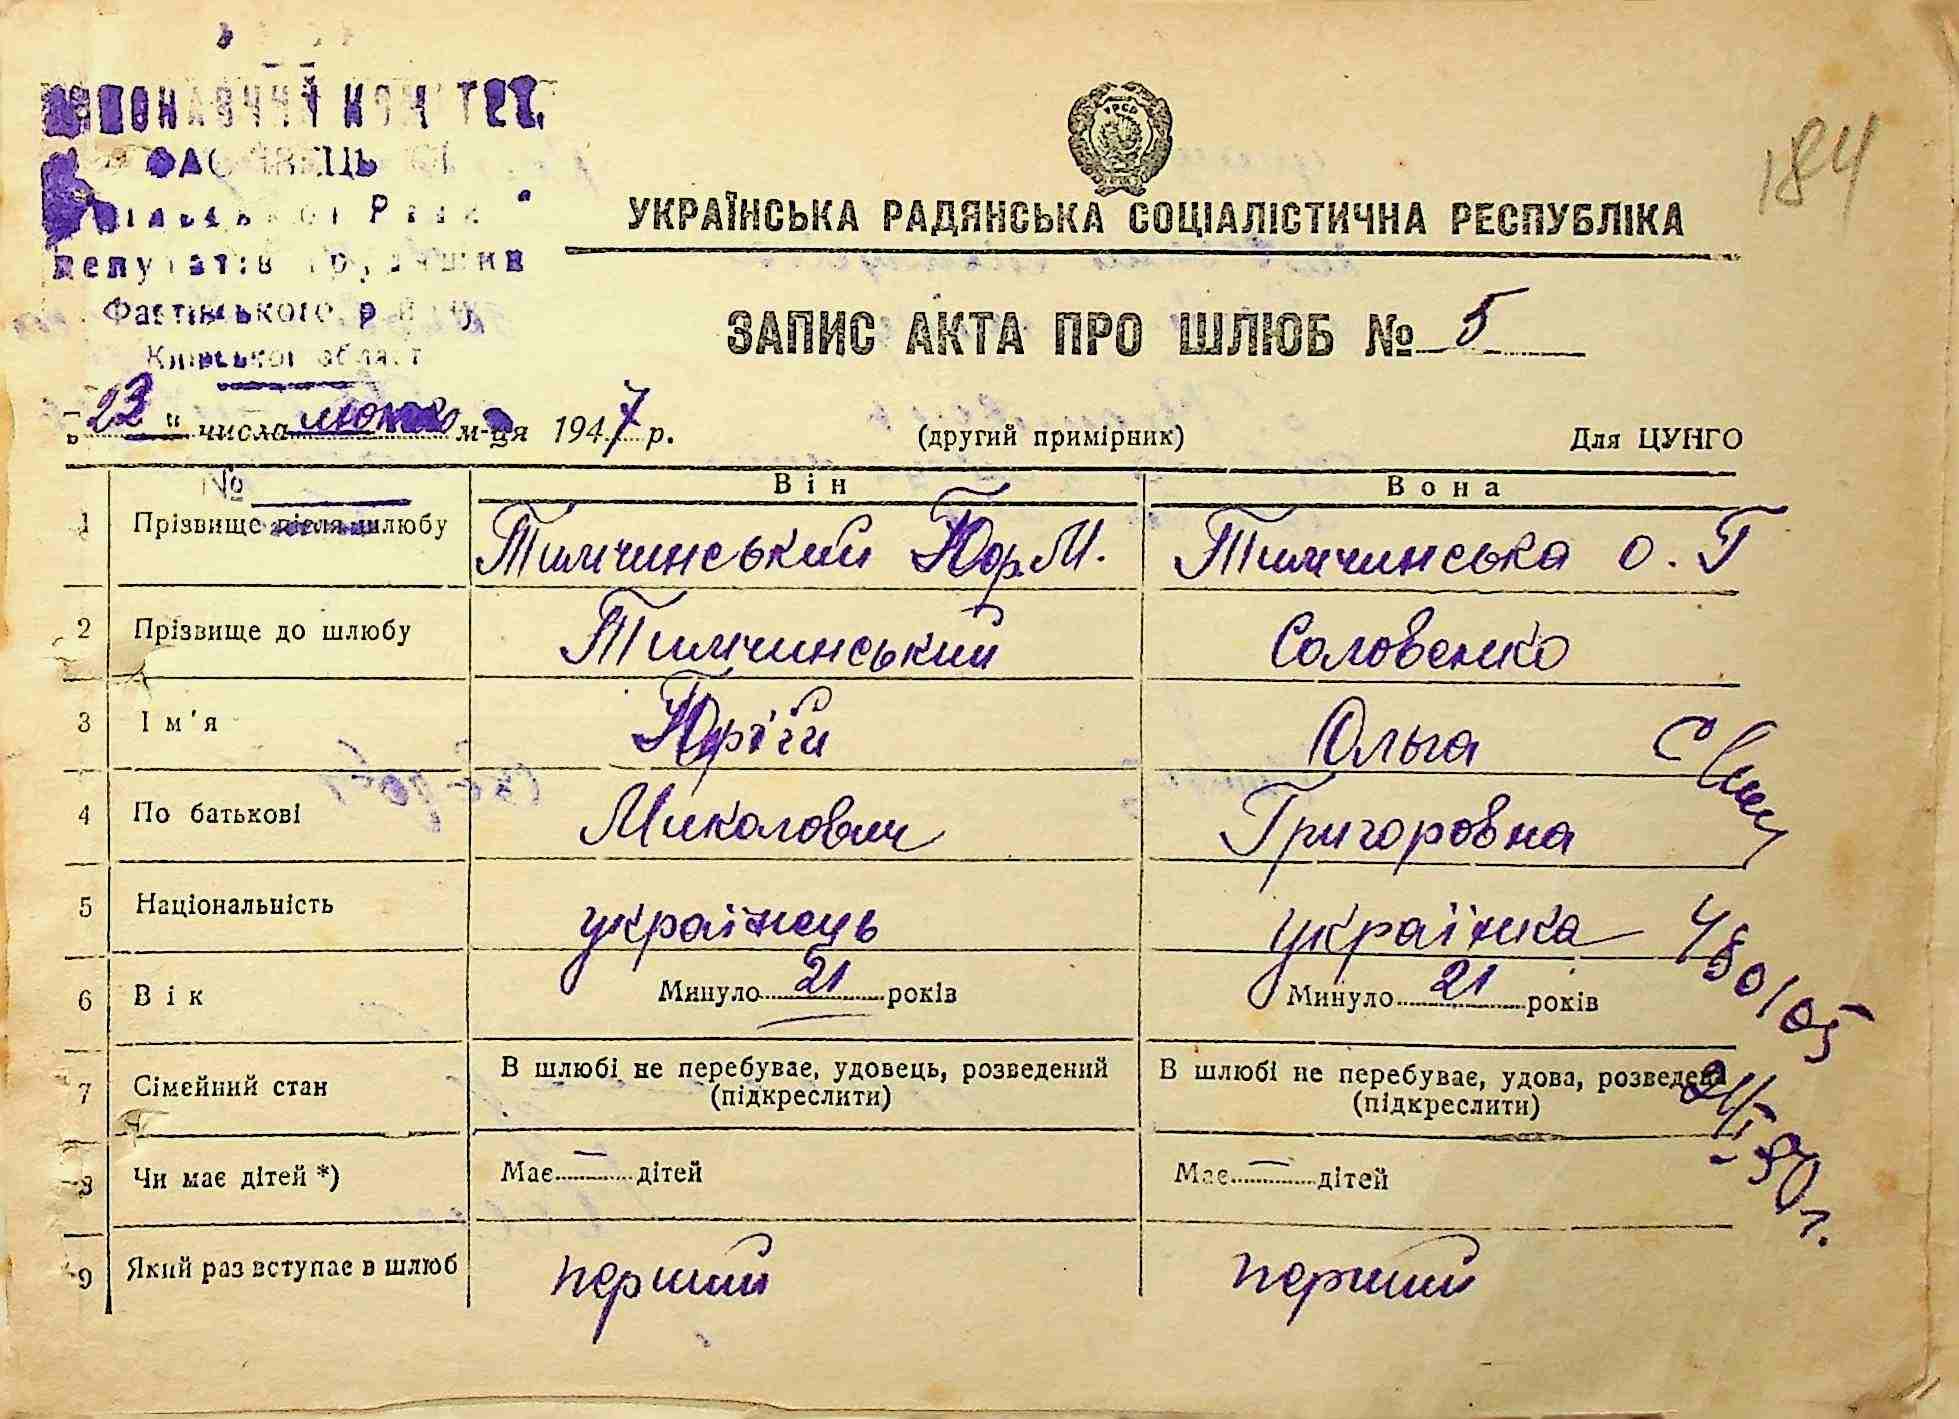 184
УКРАЇНСЬКА РАДЯНСЬКА СОЦІАЛІСТИЧНА РЕСПУБЛІКА
депутатів трудящих
Фастівського р-ну
Київської області
ЗАПИС АКТА ПРО ШЛЮБ № 5
„23“ числа лютого м-ця 1947 р.
(другий примірник)
Для ЦУНГО
№
Він
Вона
1 Прізвище після шлюбу Тимчинський Юр. М. Тимчинська О. Г
2 Прізвище до шлюбу Тимчинський Соловенко
3 Ім'я Юрій Ольга
4 По батькові Миколович Григоровна
5 Національність українець українка
6 Вік Минуло 21 років Минуло 21 років
7 Сімейний стан В шлюбі не перебуває, удовець, розведений (підкреслити) В шлюбі не перебуває, удова, розведена (підкреслити)
8 Чи має дітей *) Має — дітей Має — дітей
9 Який раз вступає в шлюб перший перший